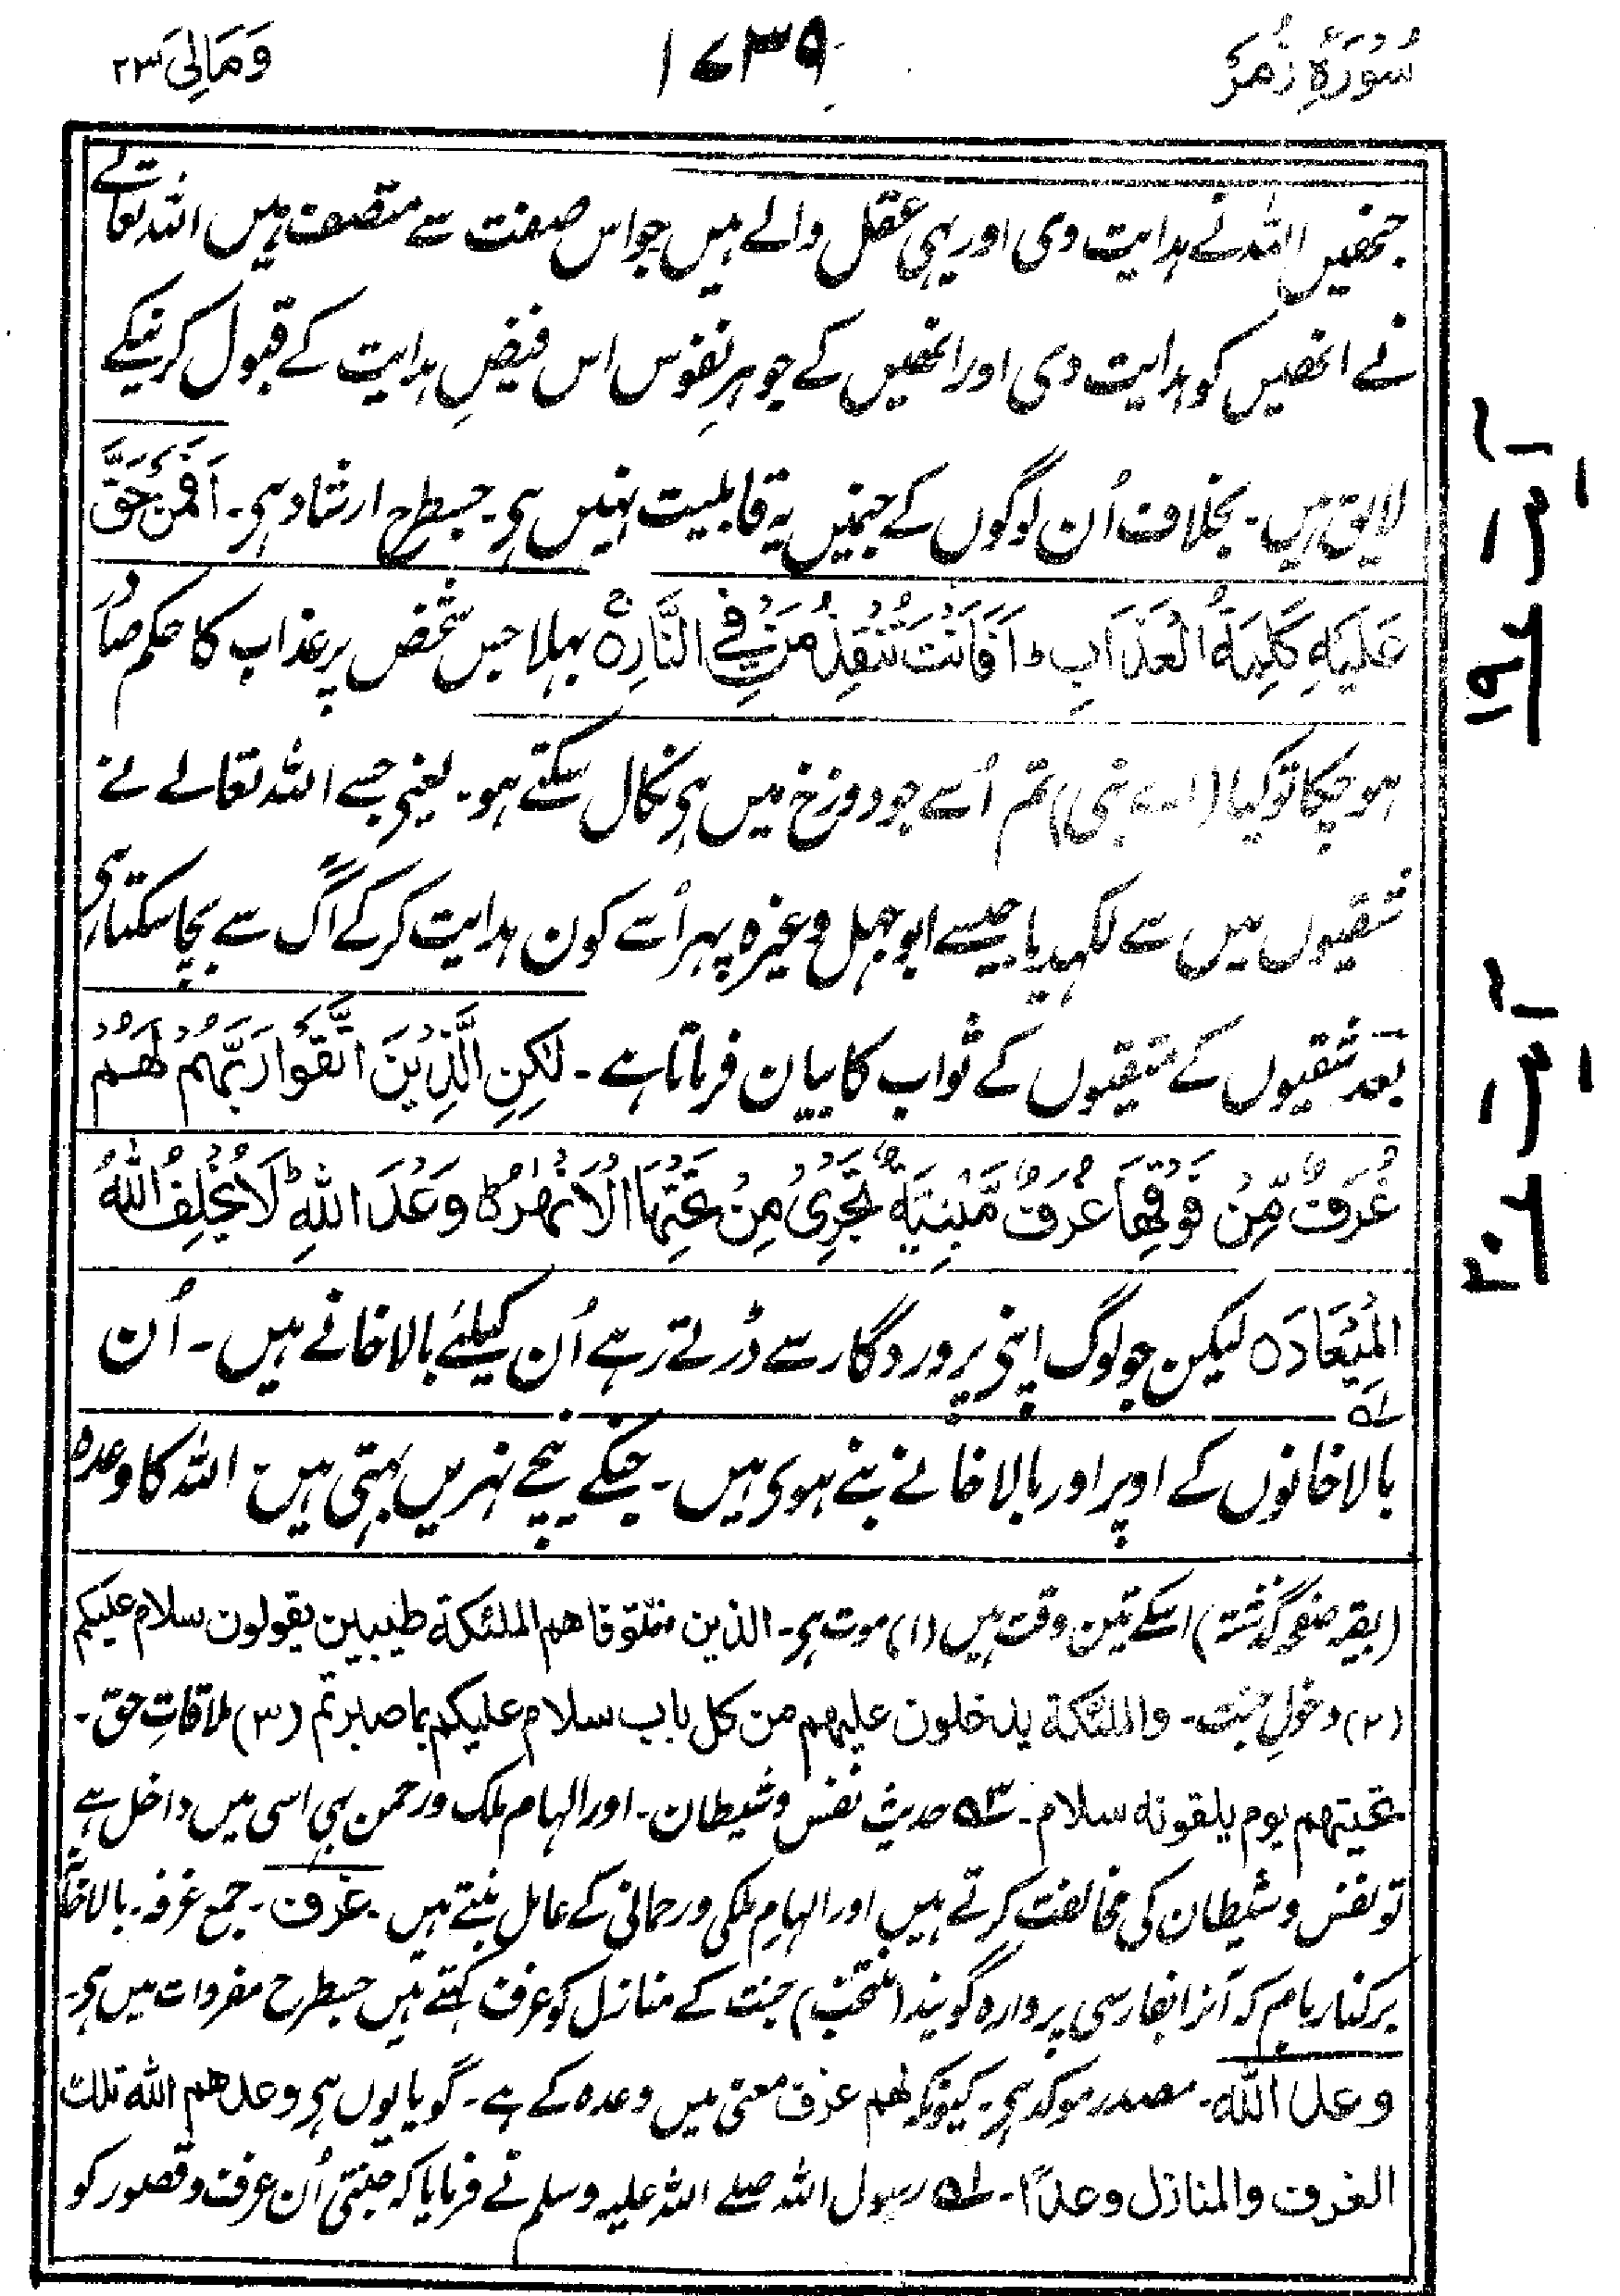 سُوْرَۂ زُمَرْ
۱۷۳۹
وَمَالِیَ ۲۳
جنھیں اللہ نے ہدایت دی اور یہی عقل والے ہیں جو اس صفت سے متصف ہیں اللہ تعالٰے
نے انھیں کو ہدایت دی اور انھیں کے جوہرِ نفوس اس فیضِ ہدایت کے قبول کرنیکے
لایق ہیں۔ بخلاف اُن لوگوں کے جنمیں یہ قابلیت نہیں ہی۔ جسطرح ارشاد ہی۔ اَفَمَنْ حَقَّ
عَلَيْهِ كَلِمَةُ الْعَذَابِ ط اَفَاَنْتَ تُنْقِذُ مَنْ فِي النَّارِ ہ ج بہلا جس شخص پر عذاب کا حکم صادر
ہو چکا تو کیا (اے نبی) تم اُسے جو دوزخ میں ہی نکال سکتے ہو۔ یعنی جسے اللہ تعالے نے
شقیوں میں سے لکہدیا جیسے ابوجہل وغیرہ پہر اُسے کون ہدایت کرکے آگ سے بچا سکتا ہی
بعد شقیوں کے متقیوں کے ثواب کا بیان فرماتا ہے۔ لٰكِنِ الَّذِيْنَ اتَّقَوْا رَبَّهُمْ لَهُمْ
غُرَفٌ مِّنْ فَوْقِهَا غُرَفٌ مَّبْنِيَةٌ تَجْرِيْ مِنْ تَحْتِهَا الْاَنْهٰرُ ہ ط وَعْدَ اللّٰهِ ط لَا يُخْلِفُ اللّٰهُ
الْمِيْعَادَ ہ لیکن جو لوگ اپنی پروردگار سے ڈرتے رہے اُن کیلئے بالاخانے ہیں۔ اُن
۵۱
بالاخانوں کے اوپر اور بالاخانے بنے ہوی ہیں۔ جنکے نیچے نہریں بہتی ہیں۔ اللہ کا وعدہ
(بقیہ صفحہ گذشتہ) اسکے تین وقت ہیں (۱) موت ہی۔ الذین تتوفاهم الملئكة طيبين يقولون سلام عليكم
(۲) دخولِ جنت۔ والملئكة يدخلون عليهم من كل باب سلام عليكم بما صبرتم (۳) ملاقاتِ حق۔
تحيتهم يوم يلقونه سلام۔ حدیث نفس و شیطان۔ اور الہام ملک و رحمن بہی اسی میں داخل ہے
تو نفس و شیطان کی مخالفت کرتے ہیں اور الہامِ ملکی و رحمانی کے عامل بنتے ہیں۔ غرف۔ جمع غرفہ۔ بالاخانہ
برکنار بام کہ آنرا بفارسی پروارہ گویند (منتخب) جنت کے منازل کو غرف کہتے ہیں جسطرح مفردات میں ہی۔
وعد الله۔ مصدر موکد ہی۔ کیونکہ لهم غرف معنی میں وعدہ کے ہے۔ گویا یوں ہی وعدهم الله تلك
الغرف والمنازل وعدًا۔ ۵۱ رسول اللہ صلے اللہ علیہ وسلم نے فرمایا کہ جنتی اُن غرف و قصور کو
آیت ۱۹
آیت ۲۰